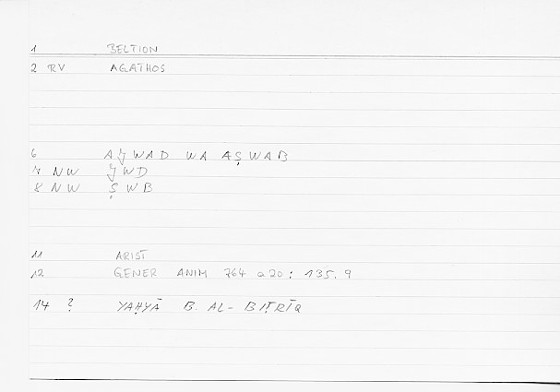 1 BELTION
2 RV AGATHOS
6 AǦWAD WA AṢWAB
7 NW ǦWD
8 NW ṢWB
11 ARIST
12 GENER ANIM 764 a 20 : 135.9
14 ? YAḤYĀ B. AL-BIṬRĪQ